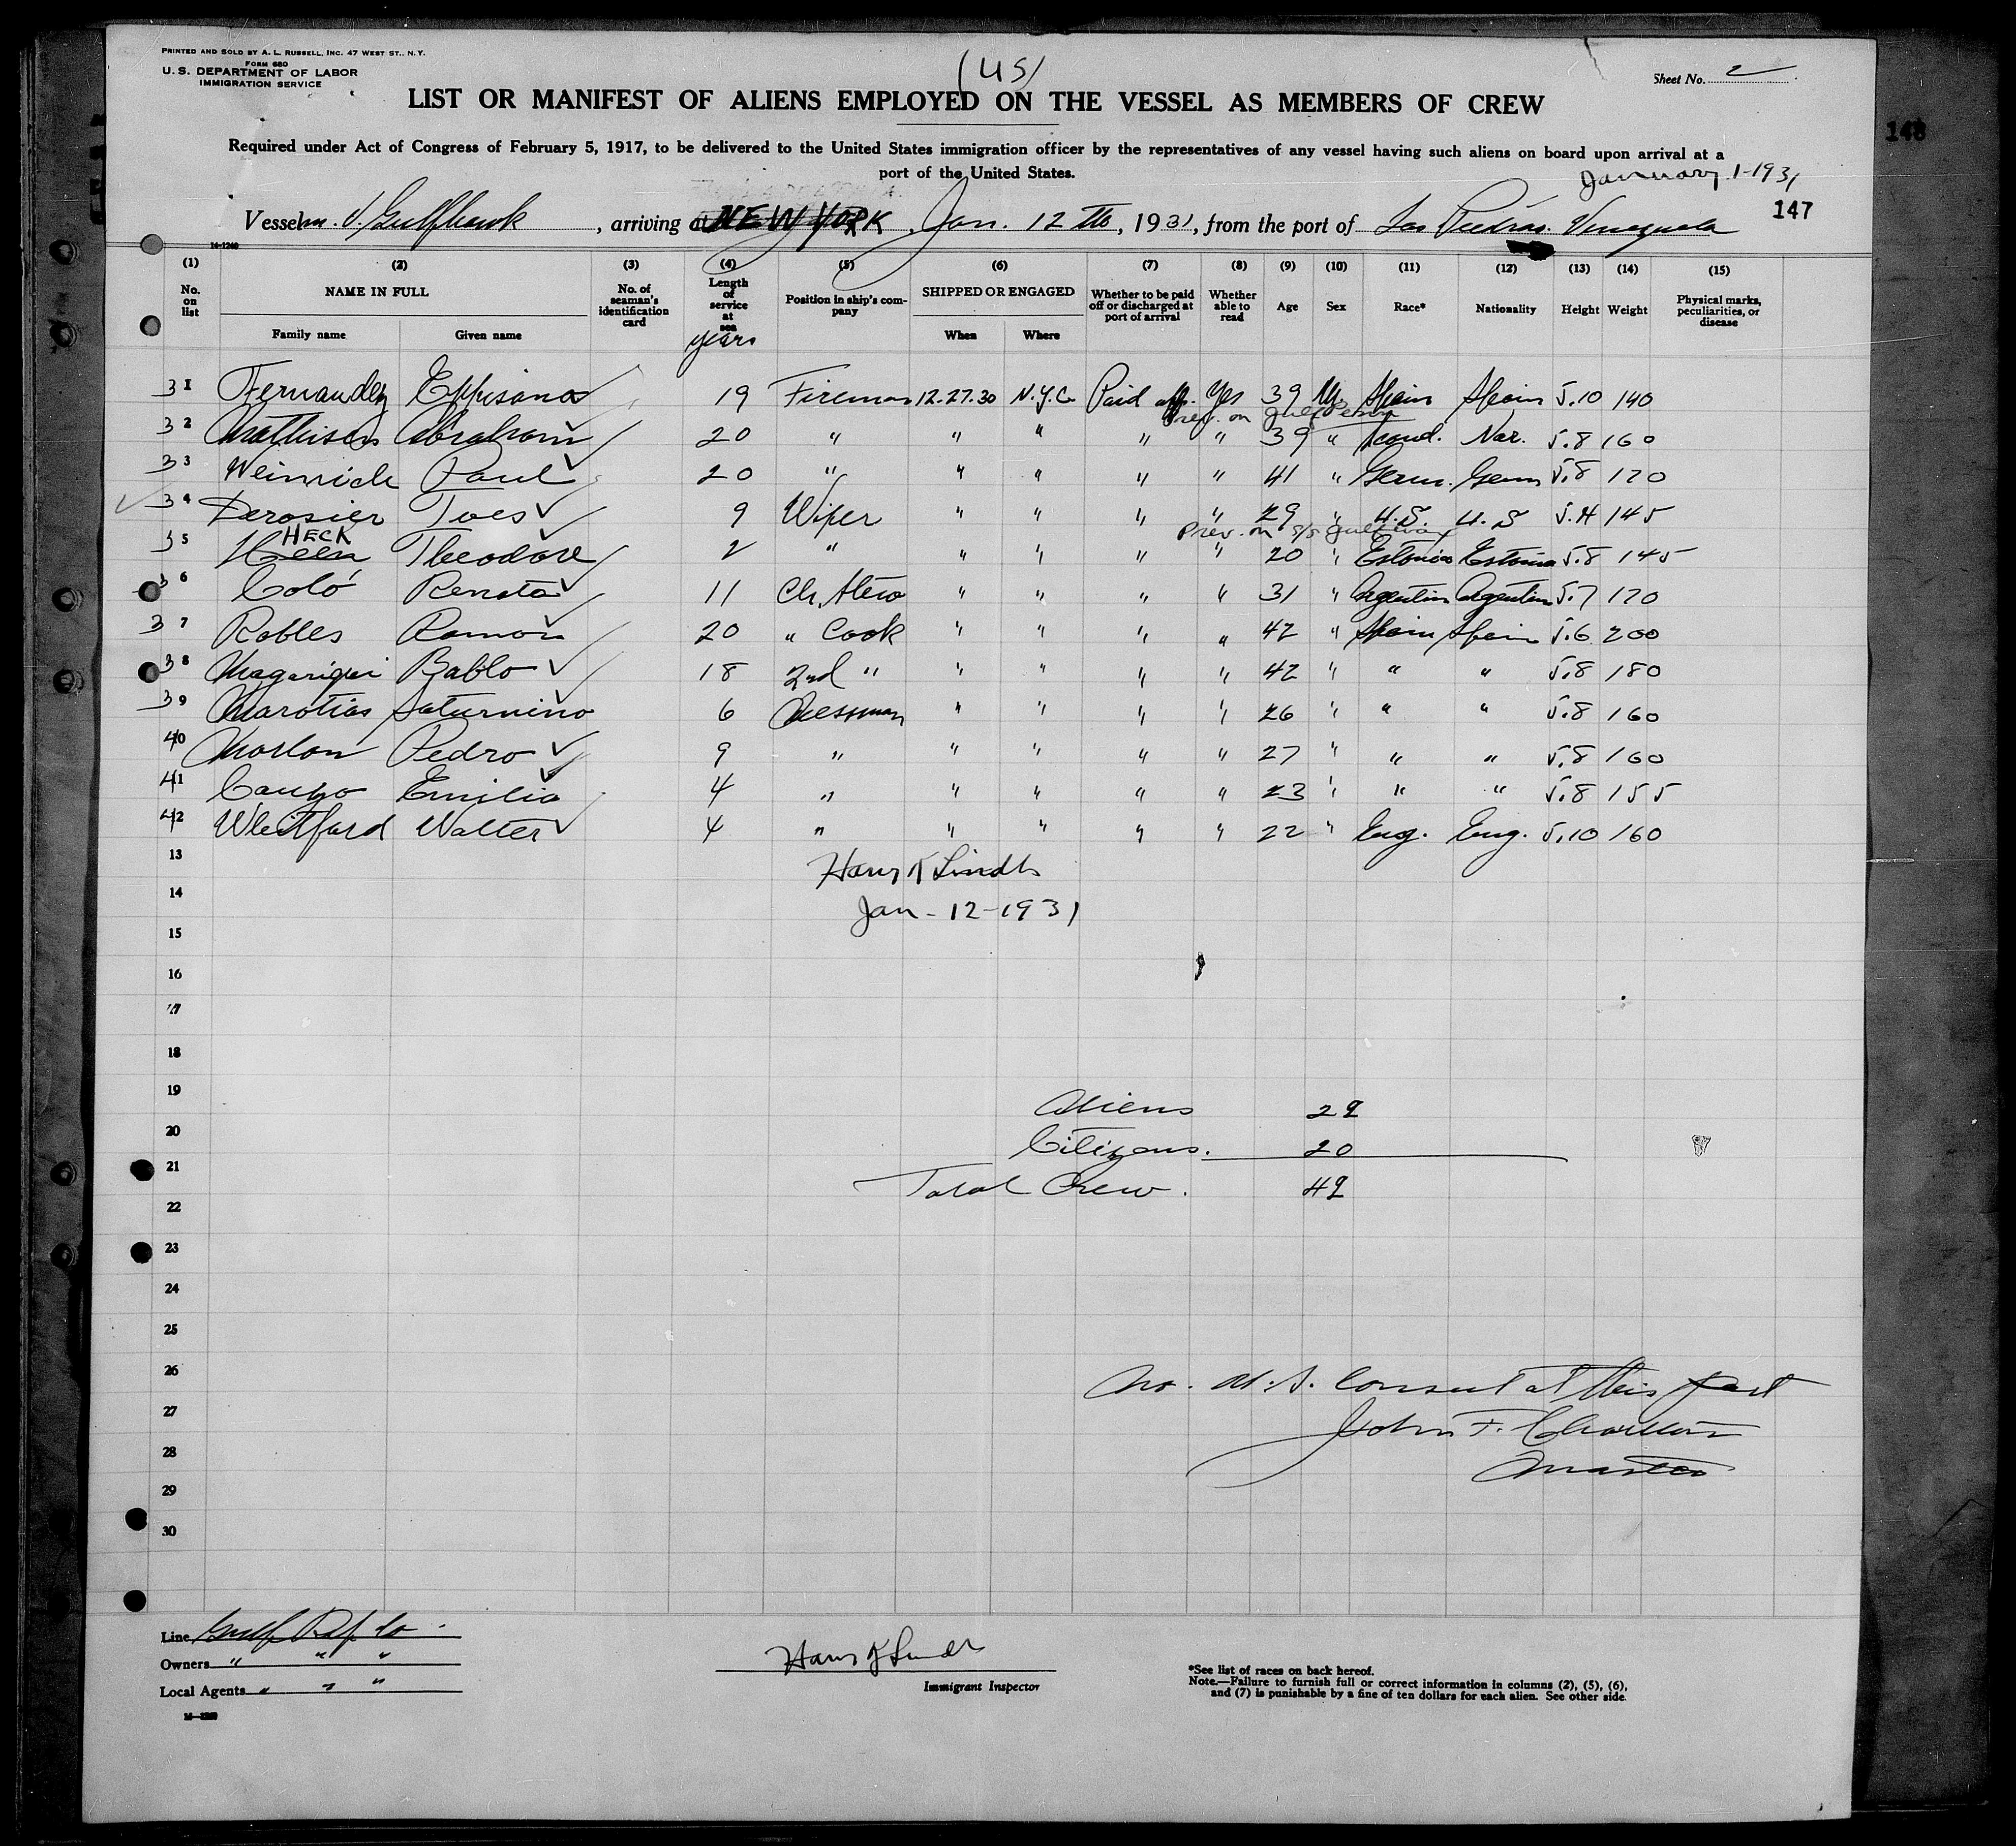 PRINTED AND SOLD BY A. L. RUSSELL, INC. 47 WEST ST., N. Y.
FORM 680
U. S. DEPARTMENT OF LABOR
IMMIGRATION SERVICE
(US)
Sheet No. 2
LIST OR MANIFEST OF ALIENS EMPLOYED ON THE VESSEL AS MEMBERS OF CREW
148
Required under Act of Congress of February 5, 1917, to be delivered to the United States immigration officer by the representatives of any vessel having such aliens on board upon arrival at a
port of the United States.
January 1-1931
147
Vessel m. v. Gulfhawk, arriving at NEW YORK, Jan. 12th, 1931, from the port of Las Piedras. Venezuela
14-1240
(1) (2) (3) (4) (5) (6) (7) (8) (9) (10) (11) (12) (13) (14) (15)
No. on list NAME IN FULL No. of seaman's identification card Length of service at sea years Position in ship's company SHIPPED OR ENGAGED Whether to be paid off or discharged at port of arrival Whether able to read Age Sex Race* Nationality Height Weight Physical marks, peculiarities, or disease
Family name Given name When Where
31 Fernandez 19 Fireman 12.27.30 N.Y.C. Paid off. Yes 39 M Spain Spain 5.10 140
Prev. on
32 Mathisen Abraham 20 " " " " " 39 " Scand. Nor. 5.8 160
33 Weinrich Paul 20 " " " " " 41 " Germ. Germ 5.8 170
34 Derosier 9 Wiper " " " " 29 " U.S. U.S 5.4 145
Prev. on S/S
HECK
35 Theodore 2 " " " " " 20 " Estonia Estonia 5.8 145
36 Coló Renato 11 Ch. Stew " " " " 31 " Argentin Argentin 5.7 170
37 Robles Ramon 20 " Cook " " " " 42 " Spain Spain 5.6 200
38 Pablo 18 2nd " " " " " 42 " " " 5.8 180
39 Saturnino 6 Messman " " " " 26 " " " 5.8 160
40 Pedro 9 " " " " " 27 " " " 5.8 160
41 Emilio 4 " " " " " 23 " " " 5.8 155
42 Whitford Walter 4 " " " " " 22 " Eng. Eng. 5.10 160
13 Harry
14
Jan-12-1931
15
16
17
18
19
Aliens 29
20
Citizens. 20
21
Total Crew. 49
22
23
24
25
26
No. U.S. Consul at this port
27
John F.
28
Master
29
30
Line Gulf Ref Co.
Owners " " "
Local Agents " " "
Immigrant Inspector
*See list of races on back hereof.
Note.—Failure to furnish full or correct information in columns (2), (5), (6),
and (7) is punishable by a fine of ten dollars for each alien. See other side.